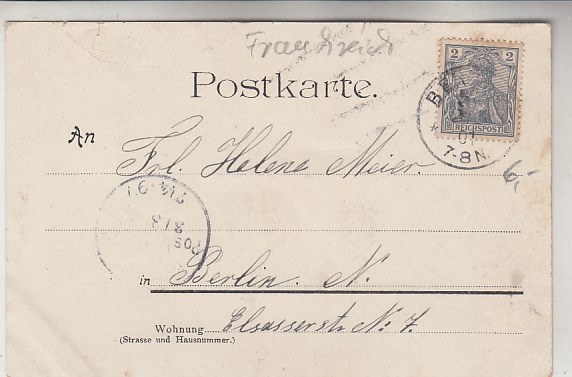 Frankreich
Postkarte.
2 2
REICHSPOST
BE
* 01
7-8N.
An
Frl. Helene Meier.
6,-
in Berlin. N.
Wohnung Elsasserstr. No 7.
(Strasse und Hausnummer.)